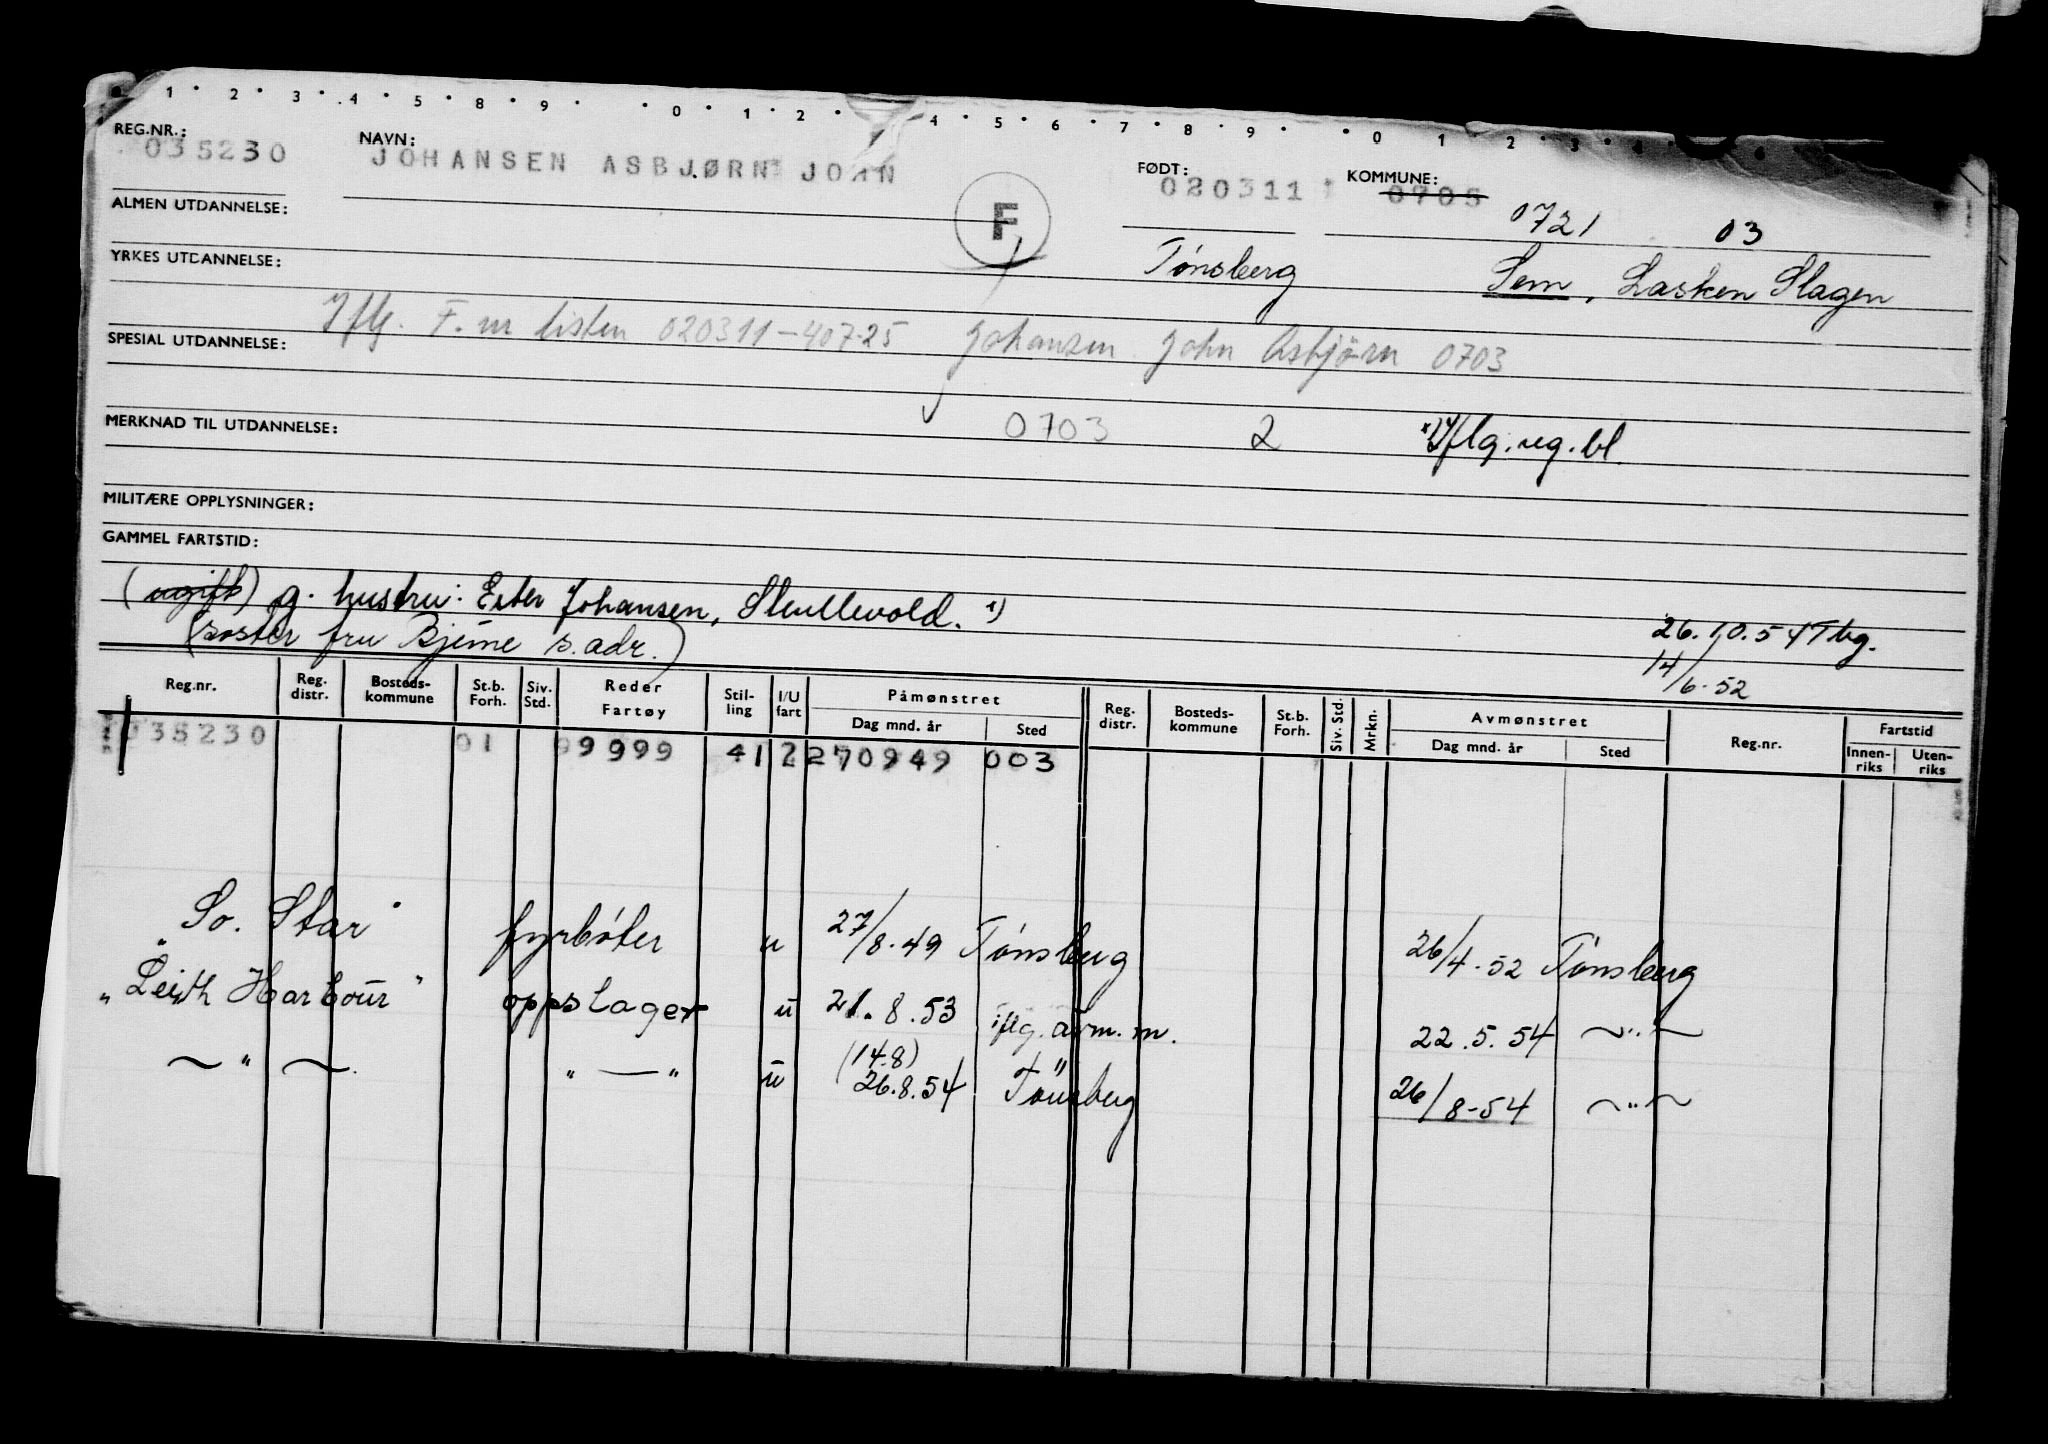 1 2 3 4 5 8 9 0 1 2 4 5 6 7 8 9 0 1 2 3 4 6
REG.NR.: 035230 NAVN: JOHANSEN ASBJØRN JOHN FØDT: 020311 KOMMUNE: 0705
0721 03
ALMEN UTDANNELSE: F
Tønsberg Sem, Lasken Slagen
YRKES UTDANNELSE:
Iflg. F. nr listen 020311-407.25 Johansen John Asbjörn 0703
SPESIAL UTDANNELSE:
0703 2 x) Iflg. reg. bl.
MERKNAD TIL UTDANNELSE:
MILITÆRE OPPLYSNINGER:
GAMMEL FARTSTID:
(ugift) g. hustru: Ester Johansen, Skullevold. x)
(søster fru Bjerne s. adr.)
26.10.54 Tbg.
14/6-52
Reg.nr. Reg. distr. Bosteds-kommune St.b. Forh. Siv. Std. Reder Fartøy Stil-ling I/U fart Påmønstret Dag mnd. år Sted Reg. distr. Bosteds-kommune St.b. Forh. Siv. Std. Mrkn. Avmønstret Dag mnd. år Sted Reg.nr. Fartstid Innen-riks Uten-riks
035230 01 99999 412 270949 003
"So. Star" fyrbøter u 27/8-49 Tønsberg 26/4-52 Tønsberg
"Leith Harbour" oppslager u 21.8.53 iflg. avm. m. 22.5.54 ~"~
~"~ "—" u (14.8)
26.8.54 Tönsberg 26/8-54 ~"~